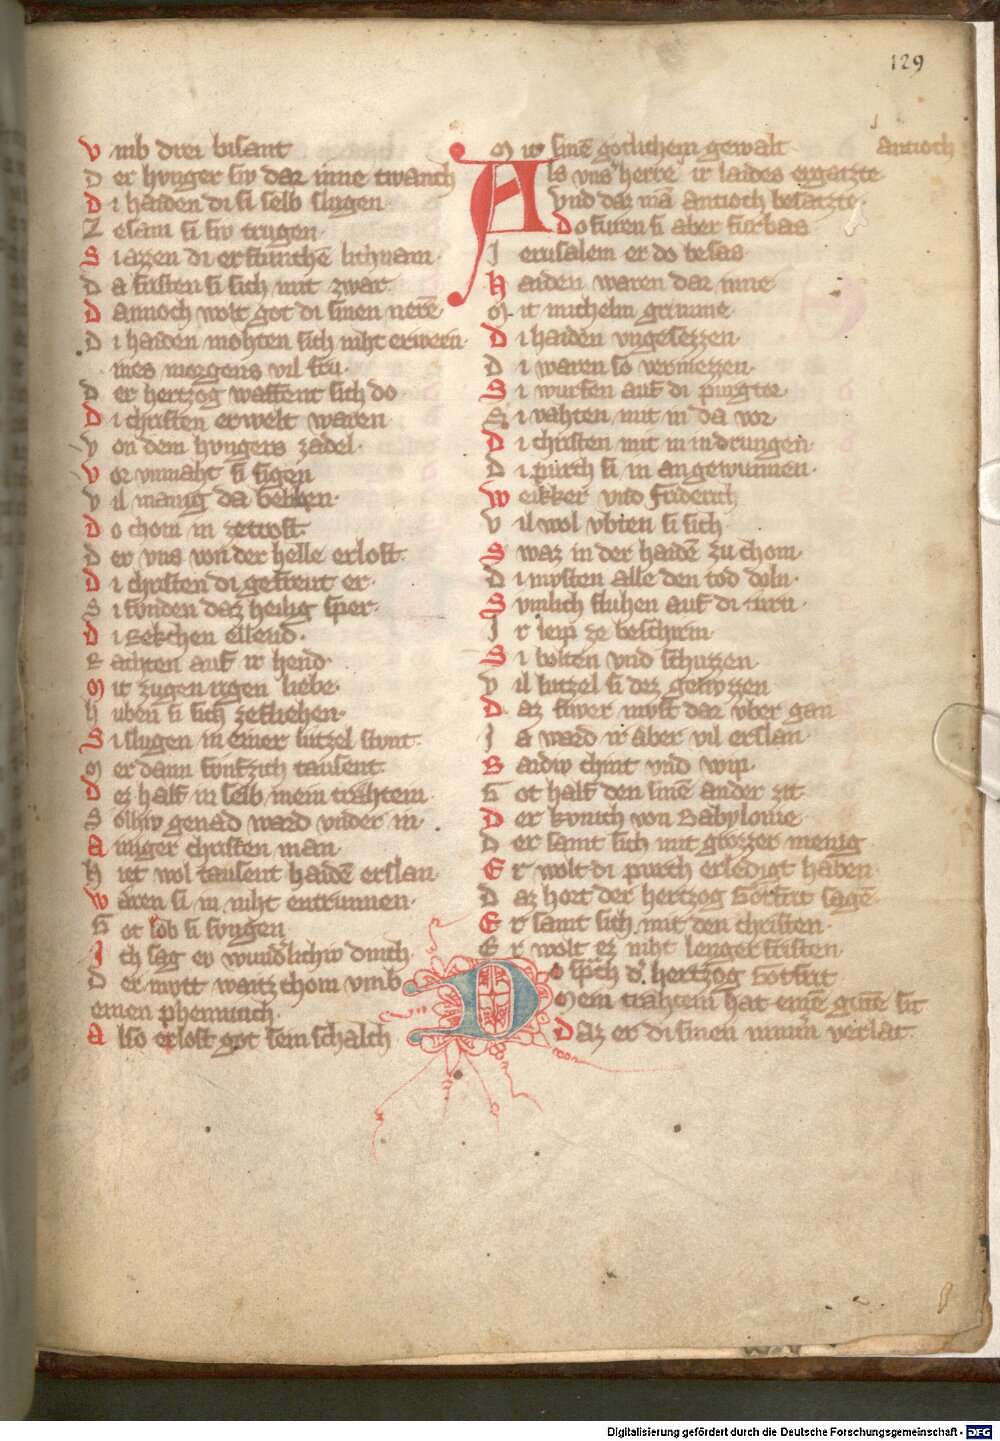 129
V mb drei bisant
D er hvnger siv dar inne twanch
D i haiden di si selb slugen
Z esam si siv trugen
S i azzen di erstunchē lichnam
D a fristen si sich mit zwar
D annoch wolt got di sinen nerē
D i haiden mohten sich niht erwern
ines morgens vil fru
D er hertzog waffent sich do
D i christen erwelt waren
V on dem hvngers zadel
V or vnmaht si sigen
V il manig da beliben
D o chom in ze trost
D er vns von der helle erlost
D i christen di gefreut er
S i funden daz heilig sper
D i rekchen ellend
R achten auf ir hend
M it zugen irgen liebe
H uben si sich ze fliehen
S i slugen in einer lutzel stvnt
M er dann funfzich tausent
D ez half in selb mein trahtein
S olhiv genad ward vnder in
A iniger christen man
H iet wol tausent haidē erslan
W aren si in niht entrunnen
G ot lob si sungen
I ch sag ev wundlichiv dinch
D er mvtt waitz chom vmb
einen phenninch
A lso erlost got sein schalch
M it sinē gotlichem gewalt
antioch
A ls vns herre ir laides ergatzte
Vnd daz mā antioch besatzte
D o furen si aber furbas
I erusalem er do besas
H aiden waren dar inne
M it michelm grimme
D i haiden vngesezzen
D i waren so vermezzen
S i wurfen auf di purgtor
S i vahten mit in da vor
D i christen mit in in drungen
D i purch si in an gewunnen
W eikker vnd friderich
V il wol vbten si sich
S waz in der haidē zu chom
D i mvsten alle den tod doln
S vmlich fluhen auf di turn
I r leip ze beschirm
S i bolten vnd schuzzen
V il lutzel si dez genvzzen
D az swer mvst dar vber gan
I a ward ir aber vil erslan
B aidiv chint vnd wip
G ot half den sinē ander zit
D er kvnich von Babylonie
D er samt sich mit grozzer menig
E r wolt di purch erledigt haben
D az hort der hertzog Gotfrit sagē
E r samt sich mit den christen
E r wolt ez niht lenger fristen
D o sprch d' hertzog Gotfrit
Mein trahtein hat einē gutē sit
D az er di sinen nimm̄ verlat
Digitalisierung gefördert durch die Deutsche Forschungsgemeinschaft - DFG